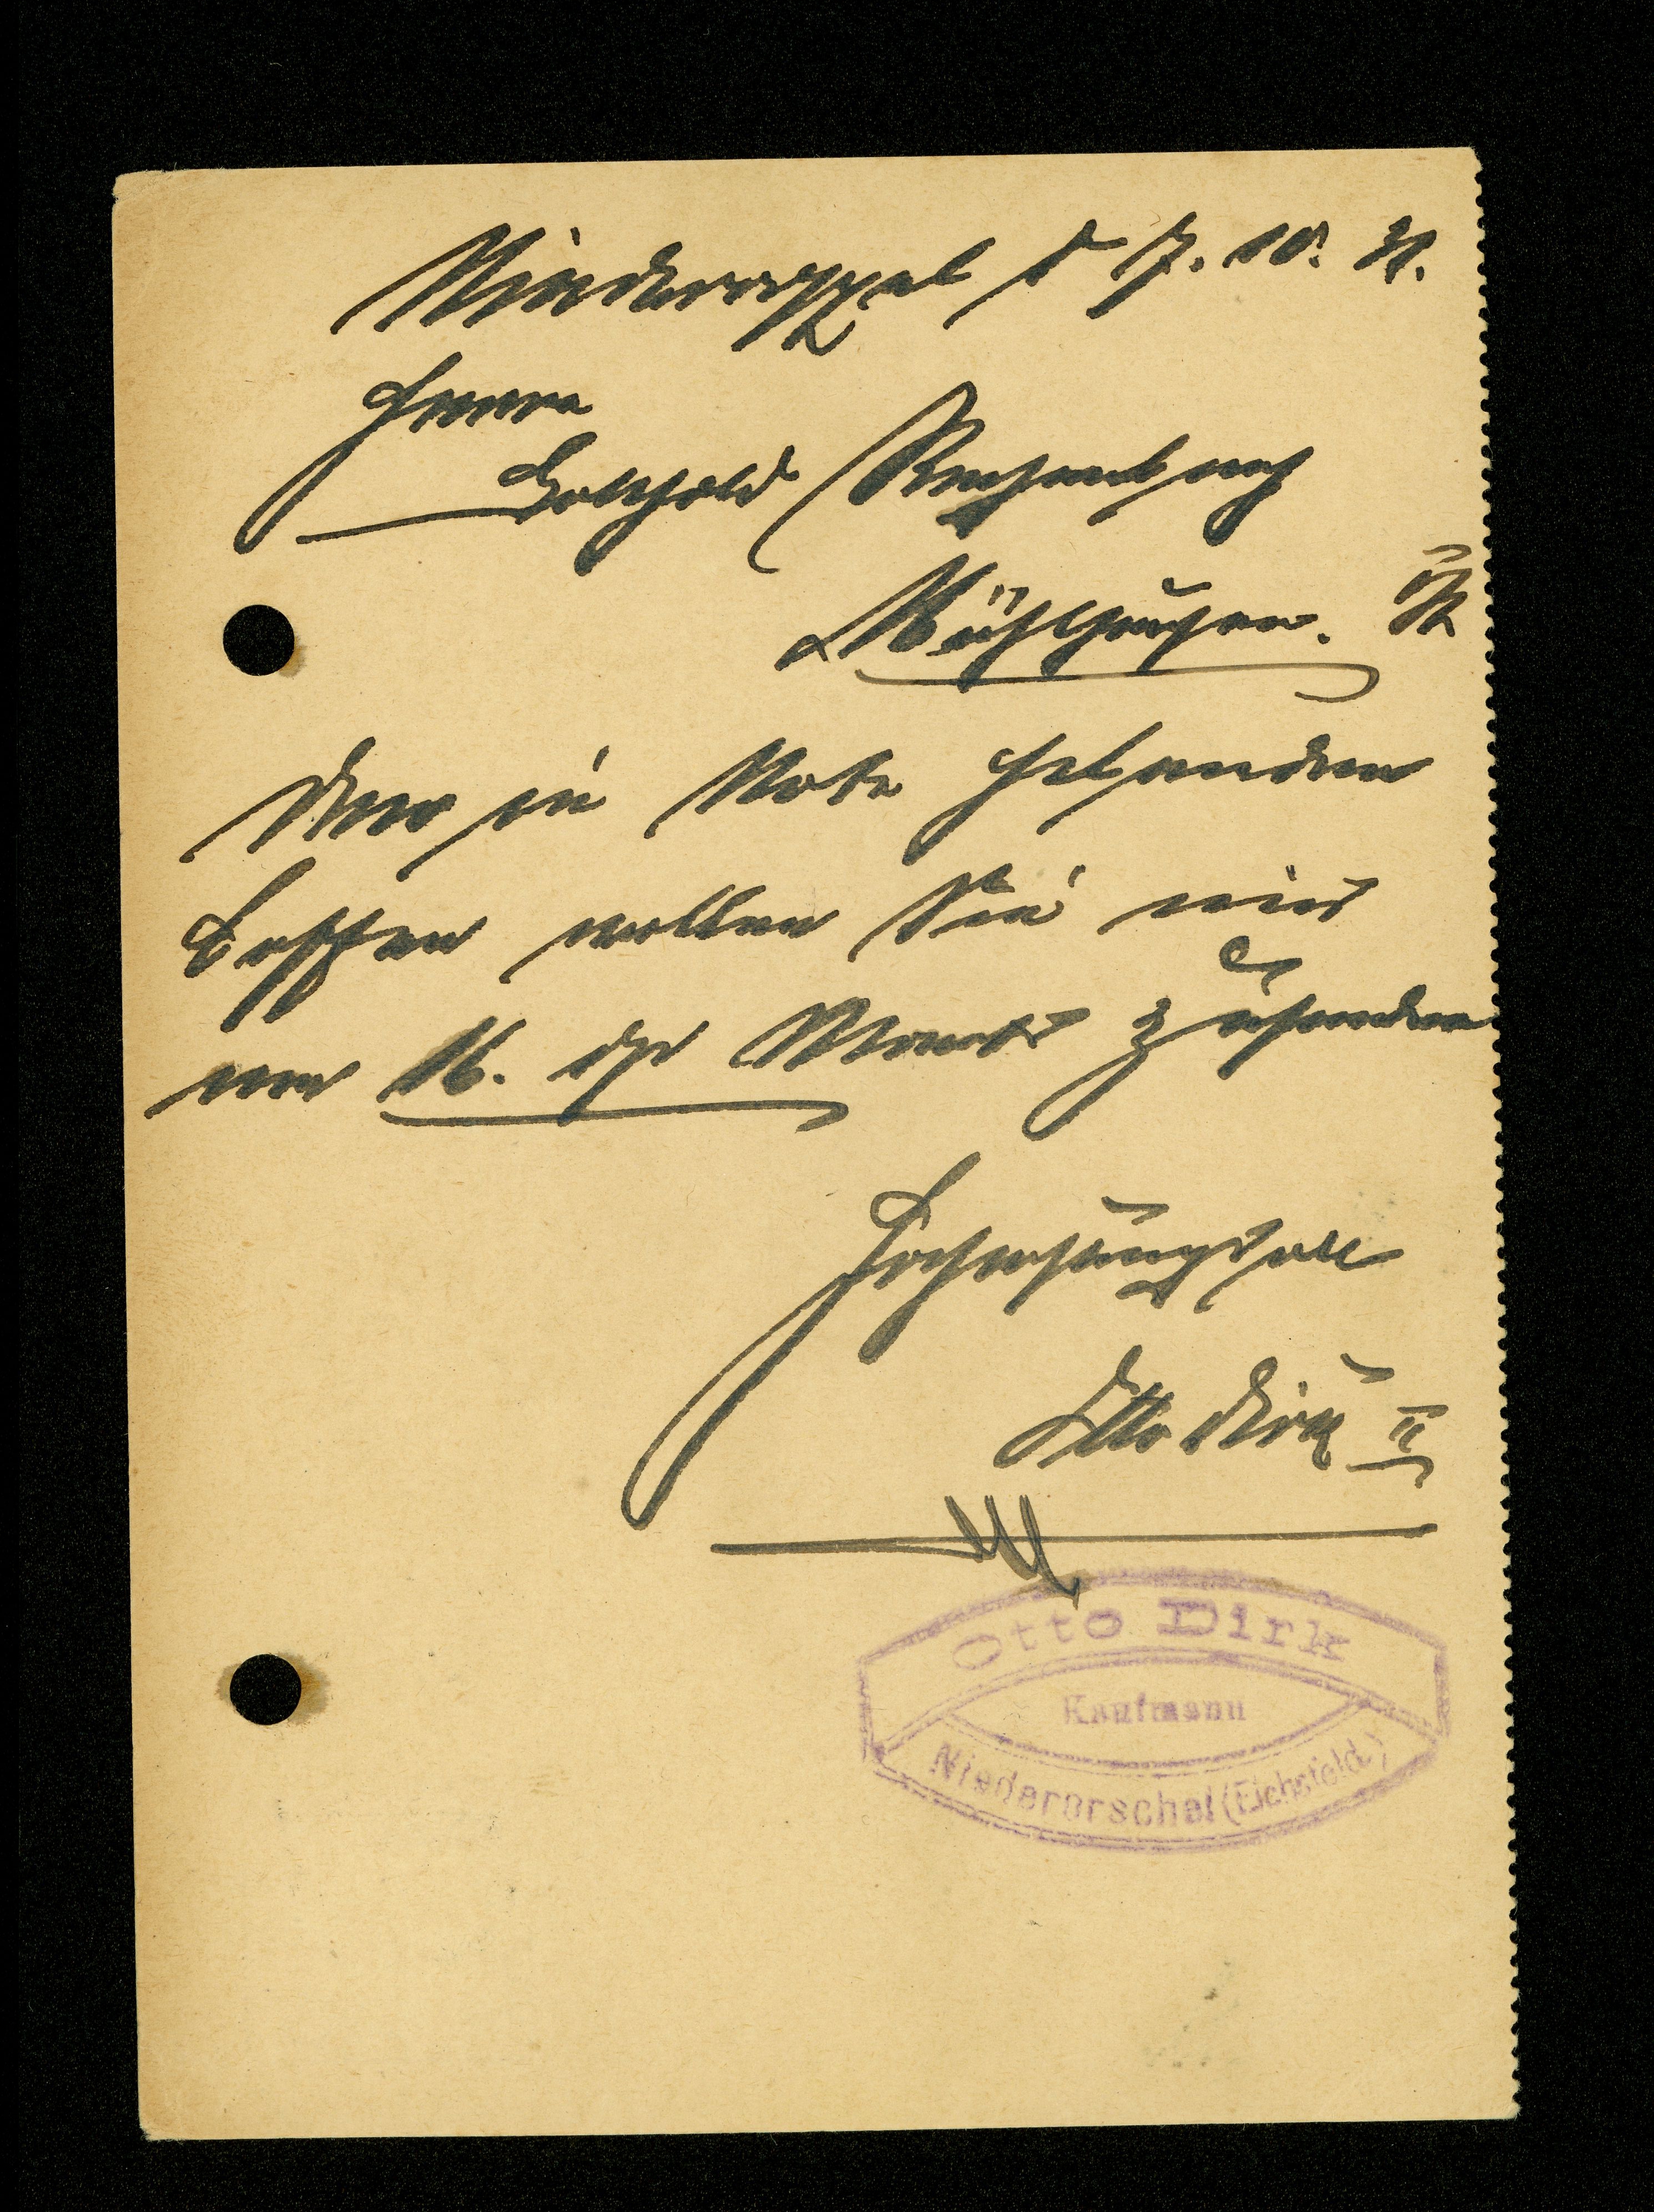 Niederorschel d 7. 10. 31.
Herrn
Gotthold Rechenbach
Mühlhausen. i/Th
Den in Nota habenden
Kaffee wollen Sie mir
am 16. ds Monats zusenden
Hochachtungsvoll
Otto Dirk II
Otto Dirk
Kaufmann
Niederorschel (Eichsfeld.)